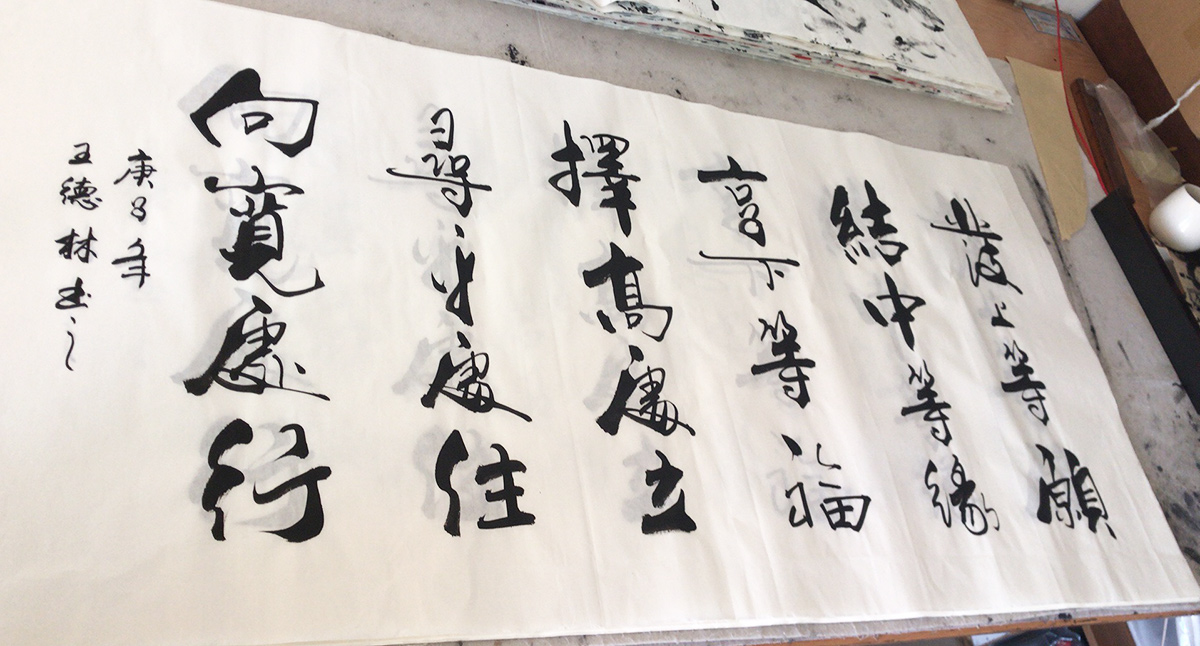 發上等願
結中等緣
享下等福
擇高處立
尋平處住
向寬處行
庚子年
王德林书之